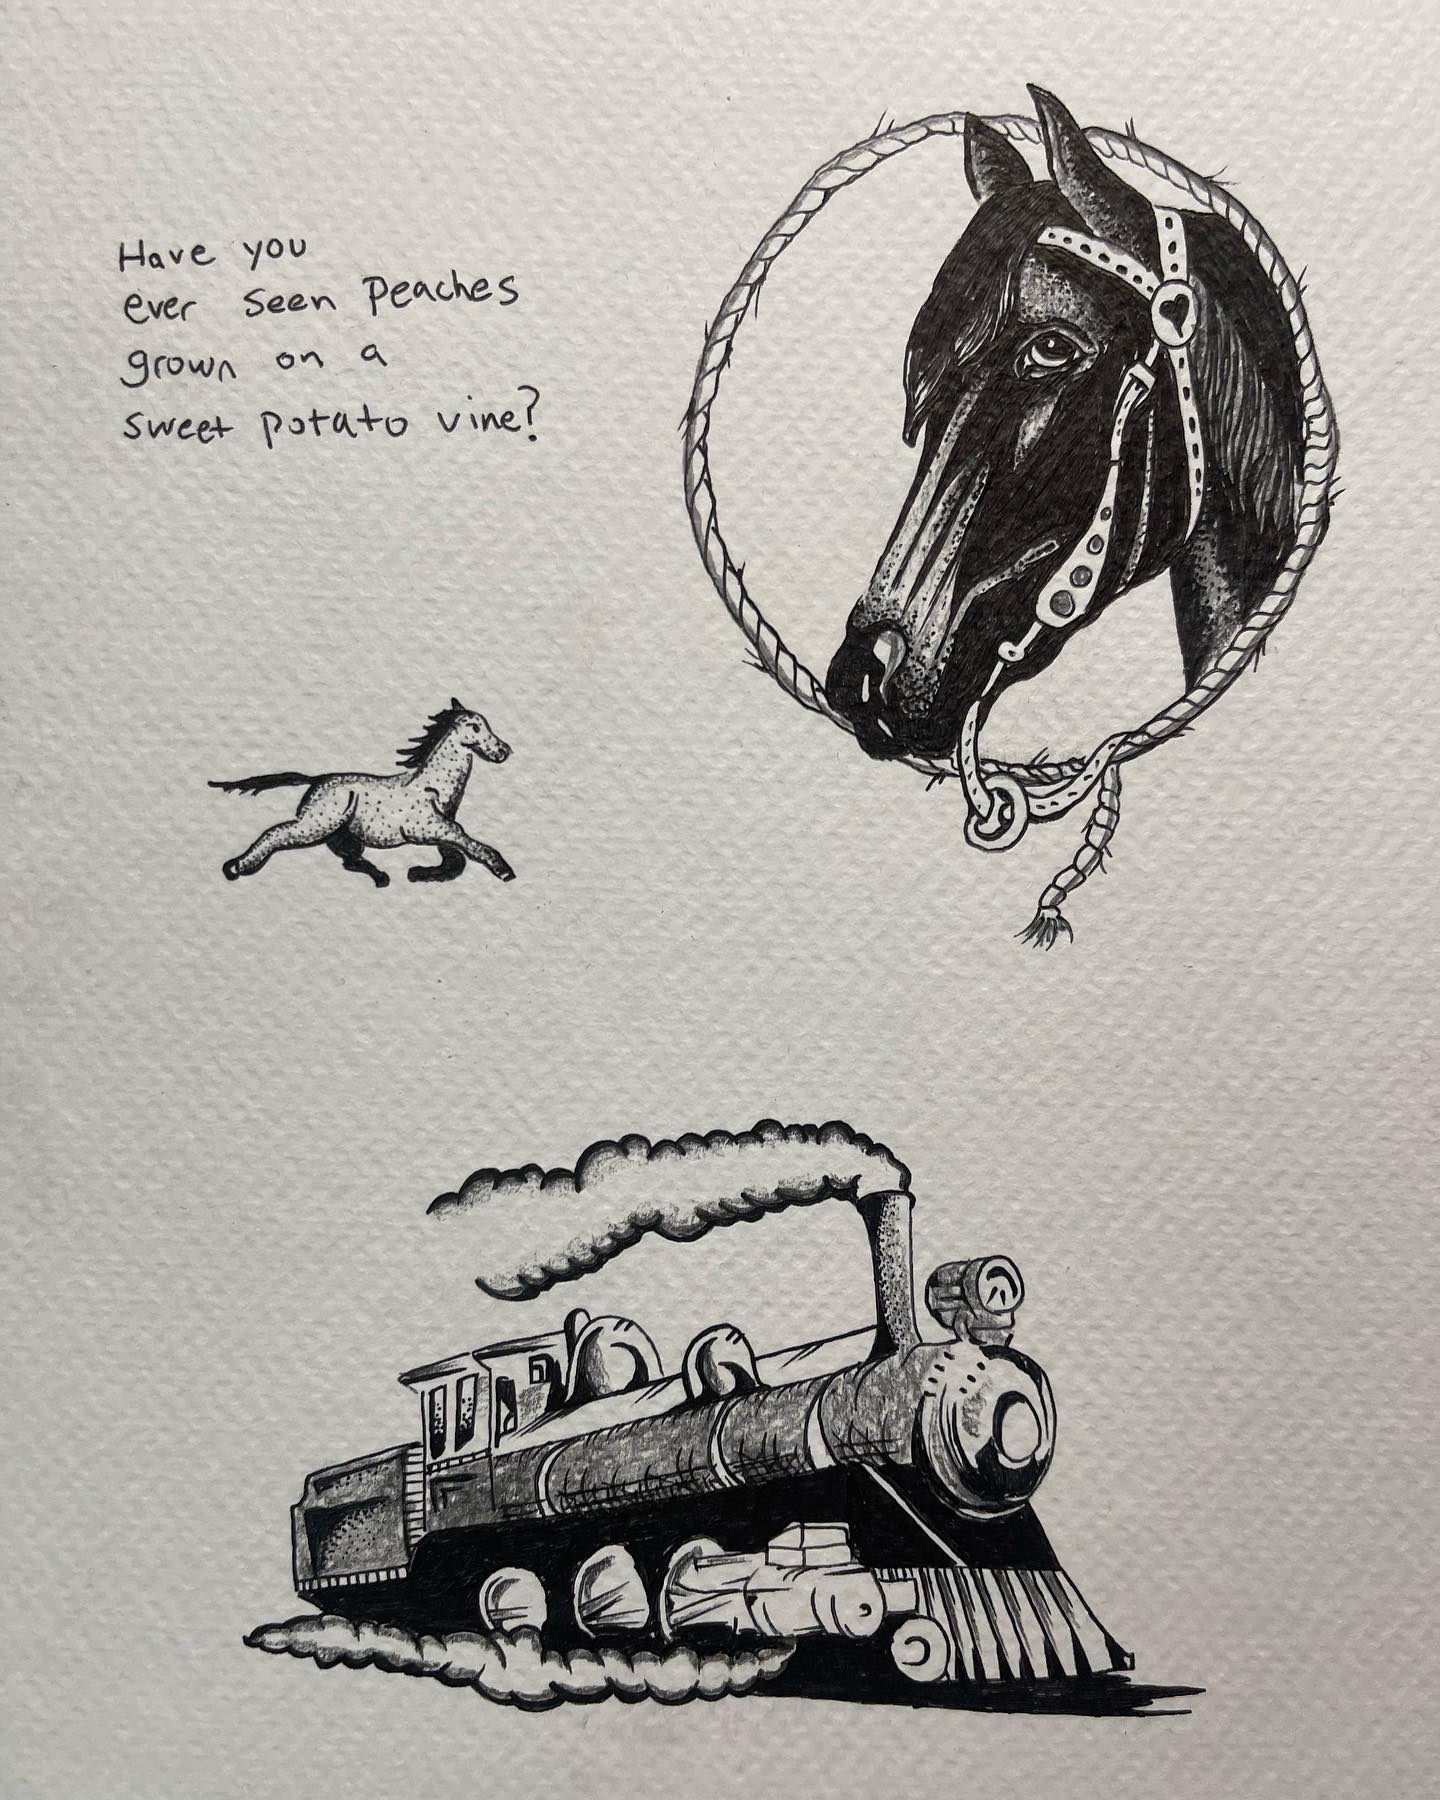 Have you
ever seen peaches
grown on a
sweet potato vine?